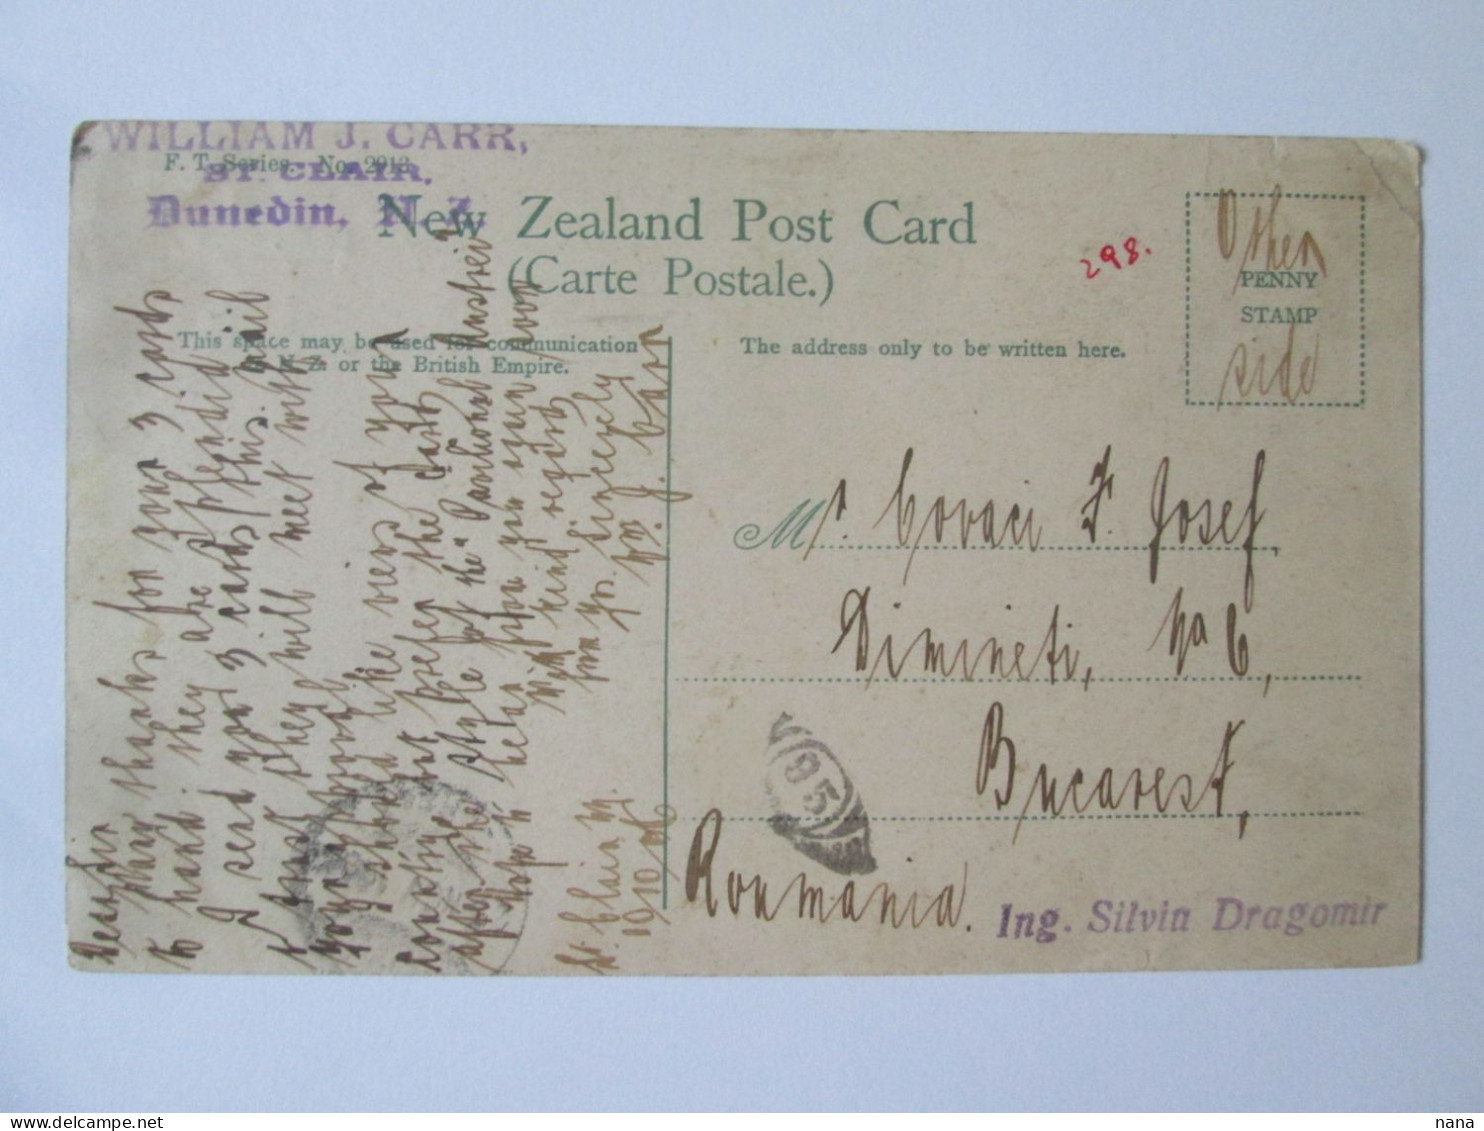 WILLIAM J. CARR,
F. T. Series. No. 2913
ST. CLAIR,
Dunedin, N. Z.
New Zealand Post Card
(Carte Postale.)
This space may be used for communication
in N. Z. or the British Empire.
The address only to be written here.
PENNY
STAMP
Other
side
298.
Dear Sir
Many thanks for your 3 cards
to hand. they are splendid
I send you 3 cards this mail
& trust they will meet with
your approval
I should like views of your
country but prefer the cards
after the style of the "Parthonel Austria"
Hope to hear from you again soon
With kind regards
from yrs. sincerely
Wm. J. Carr
St. Clair N.
10/10/06
Mr. Covaci F. Josef,
Dimineti, No 6,
Bucarest,
Roumania.
95
Ing. Silvia Dragomir
nana